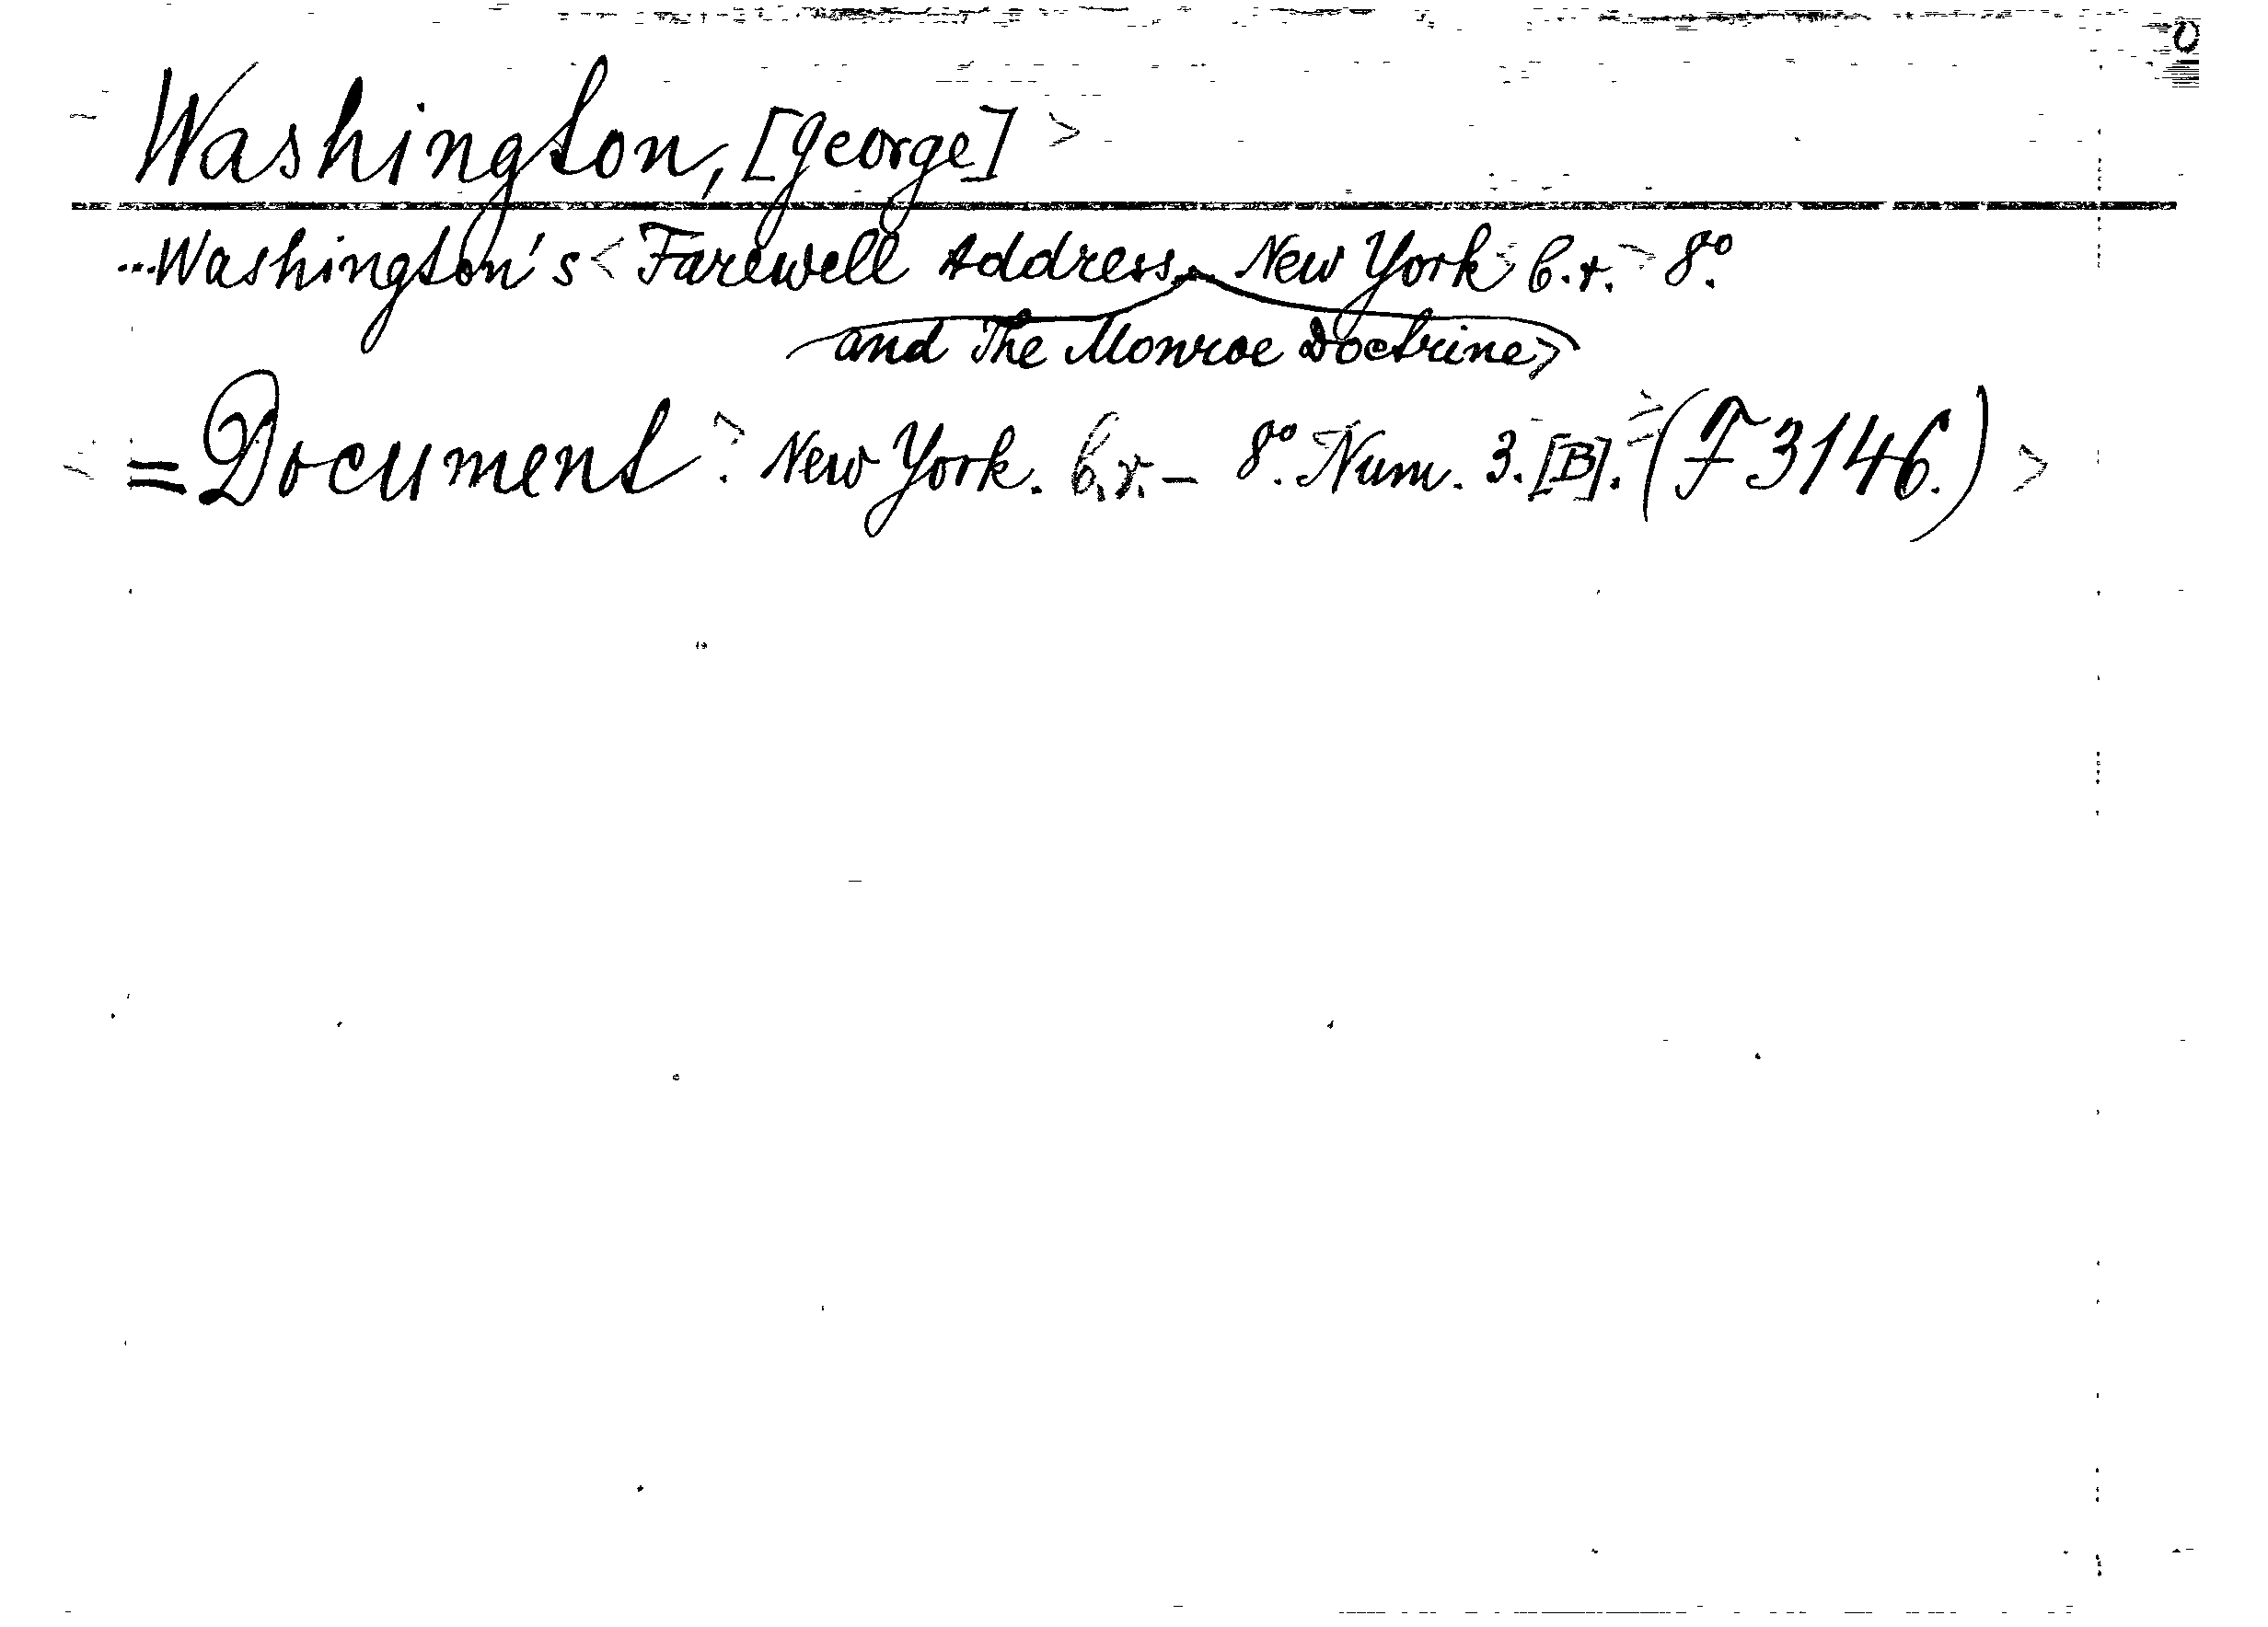 Washington, [George] >
...Washington's < Farewell Address. New York б.г. 8°.
and The Monroe Doctrine >
= Document. New York. б.г. – 8°. Num. 3. [B]. (F 3146.) >